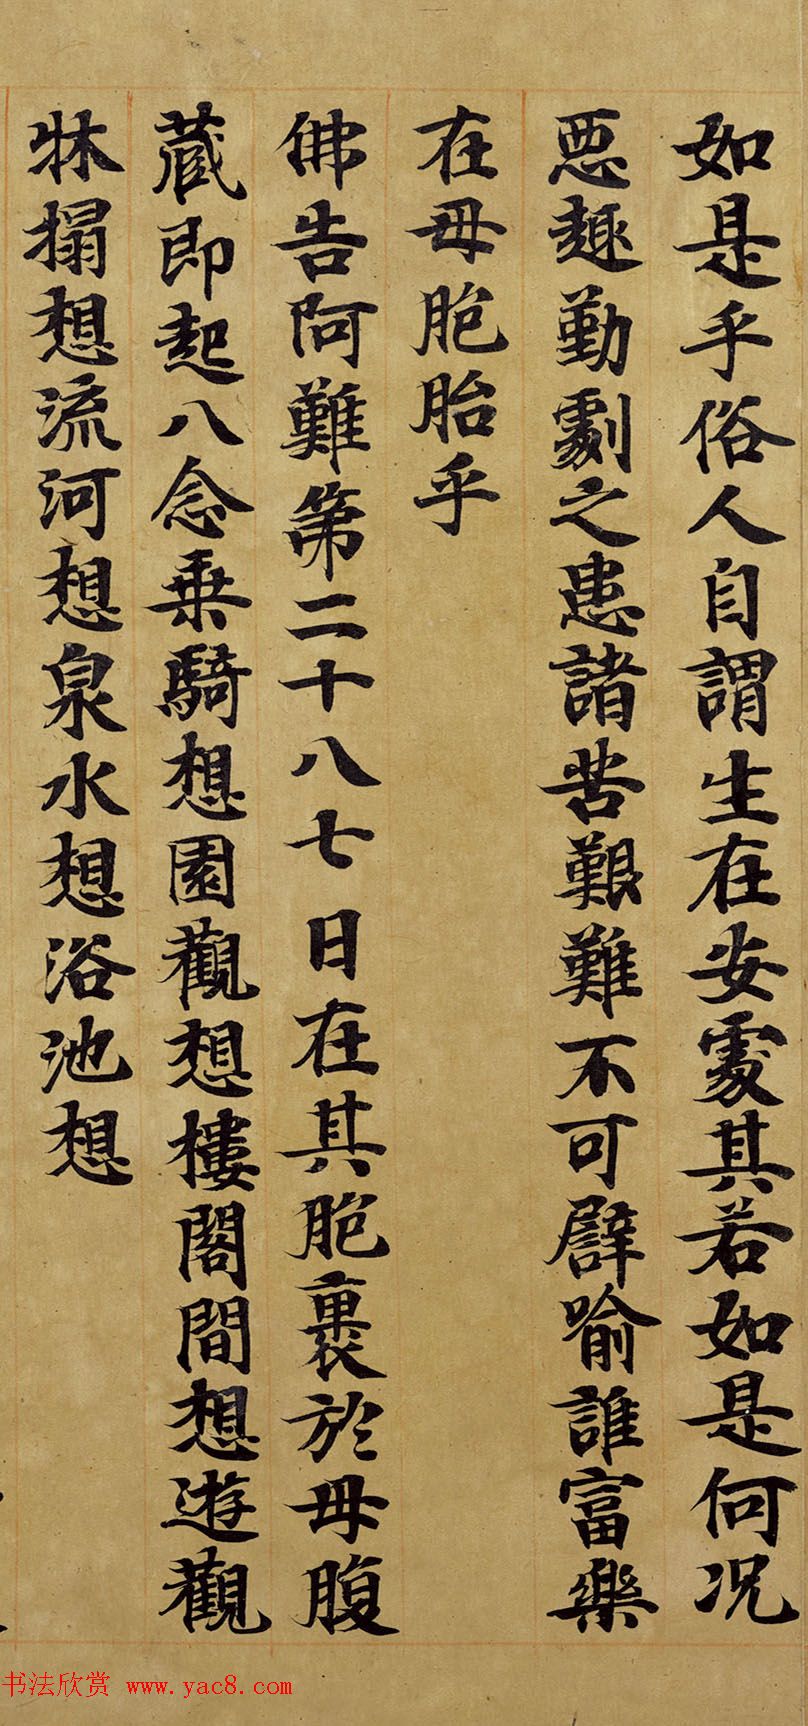 如是乎俗人自謂生在安處其若如是何況
惡趣勤劇之患諸苦艱難不可譬喻誰富樂
在母胞胎乎
佛告阿難第二十八七日在其胞裹於母腹
藏即起八念乗騎想園觀想樓閣間想遊觀
牀搨想流河想泉水想浴池想
书法欣赏 www.yac8.com